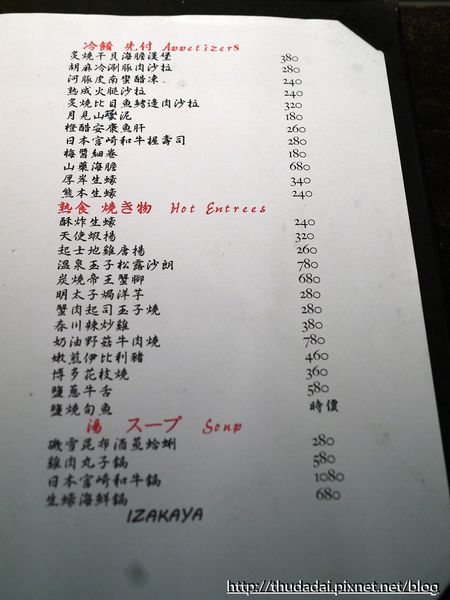 冷鮮 先付 Appetizers
炙燒干貝海膽漢堡 380
胡麻冷涮豚肉沙拉 280
河豚皮南蠻醋凍 240
熟成火腿沙拉 240
炙燒比目魚鰭邊肉沙拉 320
月見山藥泥 180
橙醋安康魚肝 260
日本宮崎和牛握壽司 280
梅醬細卷 180
山藥海膽 680
厚岸生蠔 340
熊本生蠔 240
熟食 焼き物 Hot Entrees
酥炸生蠔 240
天使蝦揚 320
起士地雞唐揚 260
溫泉玉子松露沙朗 780
炭燒帝王蟹腳 680
明太子焗洋芋 280
蟹肉起司玉子燒 280
春川辣炒雞 380
奶油野菇牛肉燒 780
嫩煎伊比利豬 460
博多花枝燒 360
鹽蔥牛舌 580
鹽燒旬魚 時價
湯 スープ Soup
磯雪昆布酒蒸蛤蜊 280
雞肉丸子鍋 580
日本宮崎和牛鍋 1080
生蠔海鮮鍋 680
IZAKAYA
http://thudadai.pixnet.net/blog